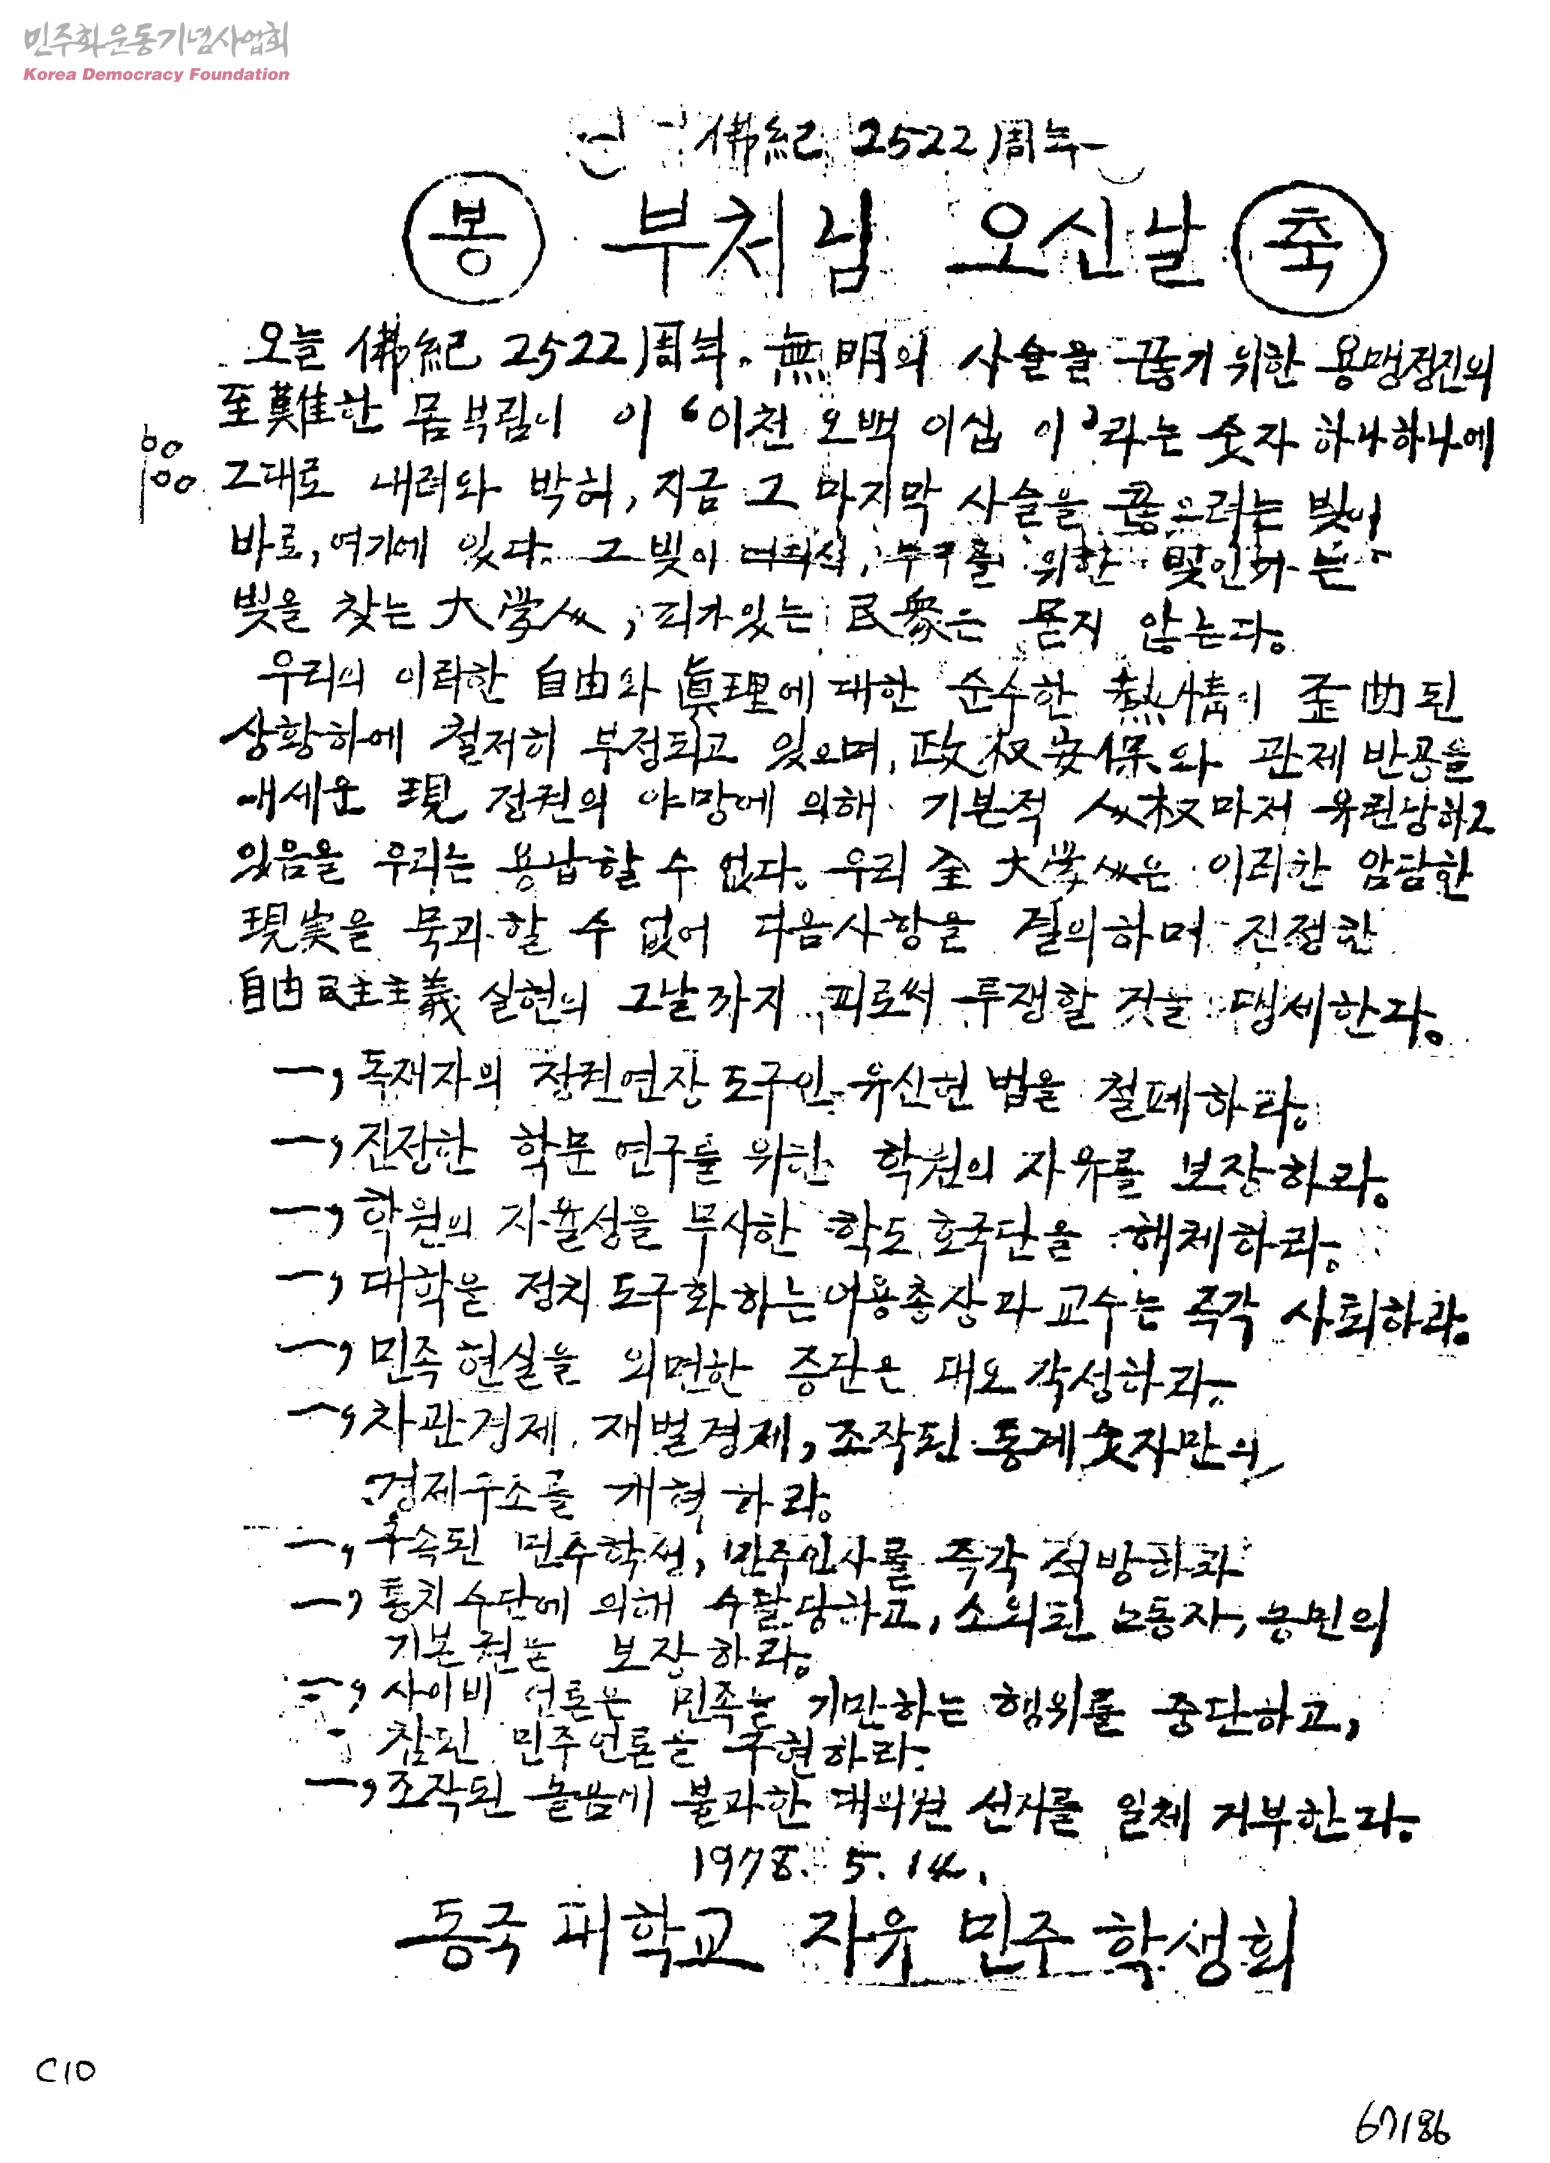 민주화운동기념사업회
Korea Democracy Foundation
佛紀 2522周年-
봉 부처님 오신날 축
오늘 佛紀 2522周年. 無明의 사슬을 끊기 위한 용맹정진의
至難한 몸부림이 이 '이천 오백 이십 이'라는 숫자 하나하나에
그대로 내려와 박혀, 지금 그 마지막 사슬을 끊으려는 빛이
바로, 여기에 있다. 그 빛이 위한 빛인가는
빛을 찾는 大學人, 피가있는 民衆은 묻지 않는다.
우리의 이러한 自由와 眞理에 대한 순수한 熱情이 歪曲된
상황하에 철저히 부정되고 있으며, 政权安保와 관제 반공을
내세운 現 정권의 야망에 의해 기본적 人权마저 유린당하고
있음을 우리는 용납할 수 없다. 우리 全 大學人은 이러한 암담한
現実을 묵과할 수 없어 다음사항을 결의하며 진정한
自由民主主義 실현의 그날까지 피로써 투쟁할 것을 맹세한다.
一, 독재자의 정권연장 도구인 유신헌법을 철폐하라.
一, 진정한 학문 연구를 위한 학원의 자유를 보장하라.
一, 학원의 자율성을 무시한 학도호국단을 해체하라.
一, 대학을 정치 도구화하는 어용총장과 교수는 즉각 사퇴하라.
一, 민족현실을 외면한 종단은 대오각성하라.
一, 차관경제, 재벌경제, 조작된 통계숫자만의
경제구조를 개혁하라.
一, 구속된 민주학생, 민주인사를 즉각 석방하라
一, 통치수단에 의해 수탈당하고, 소외된 노동자, 농민의
기본권을 보장하라.
一, 사이비 언론은 민족을 기만하는 행위를 중단하고,
참된 민주언론을 구현하라.
一, 조작된 놀음에 불과한 대의원 선거를 일체 거부한다.
1978. 5. 14.
동국대학교 자유 민주 학생회
C10
67186